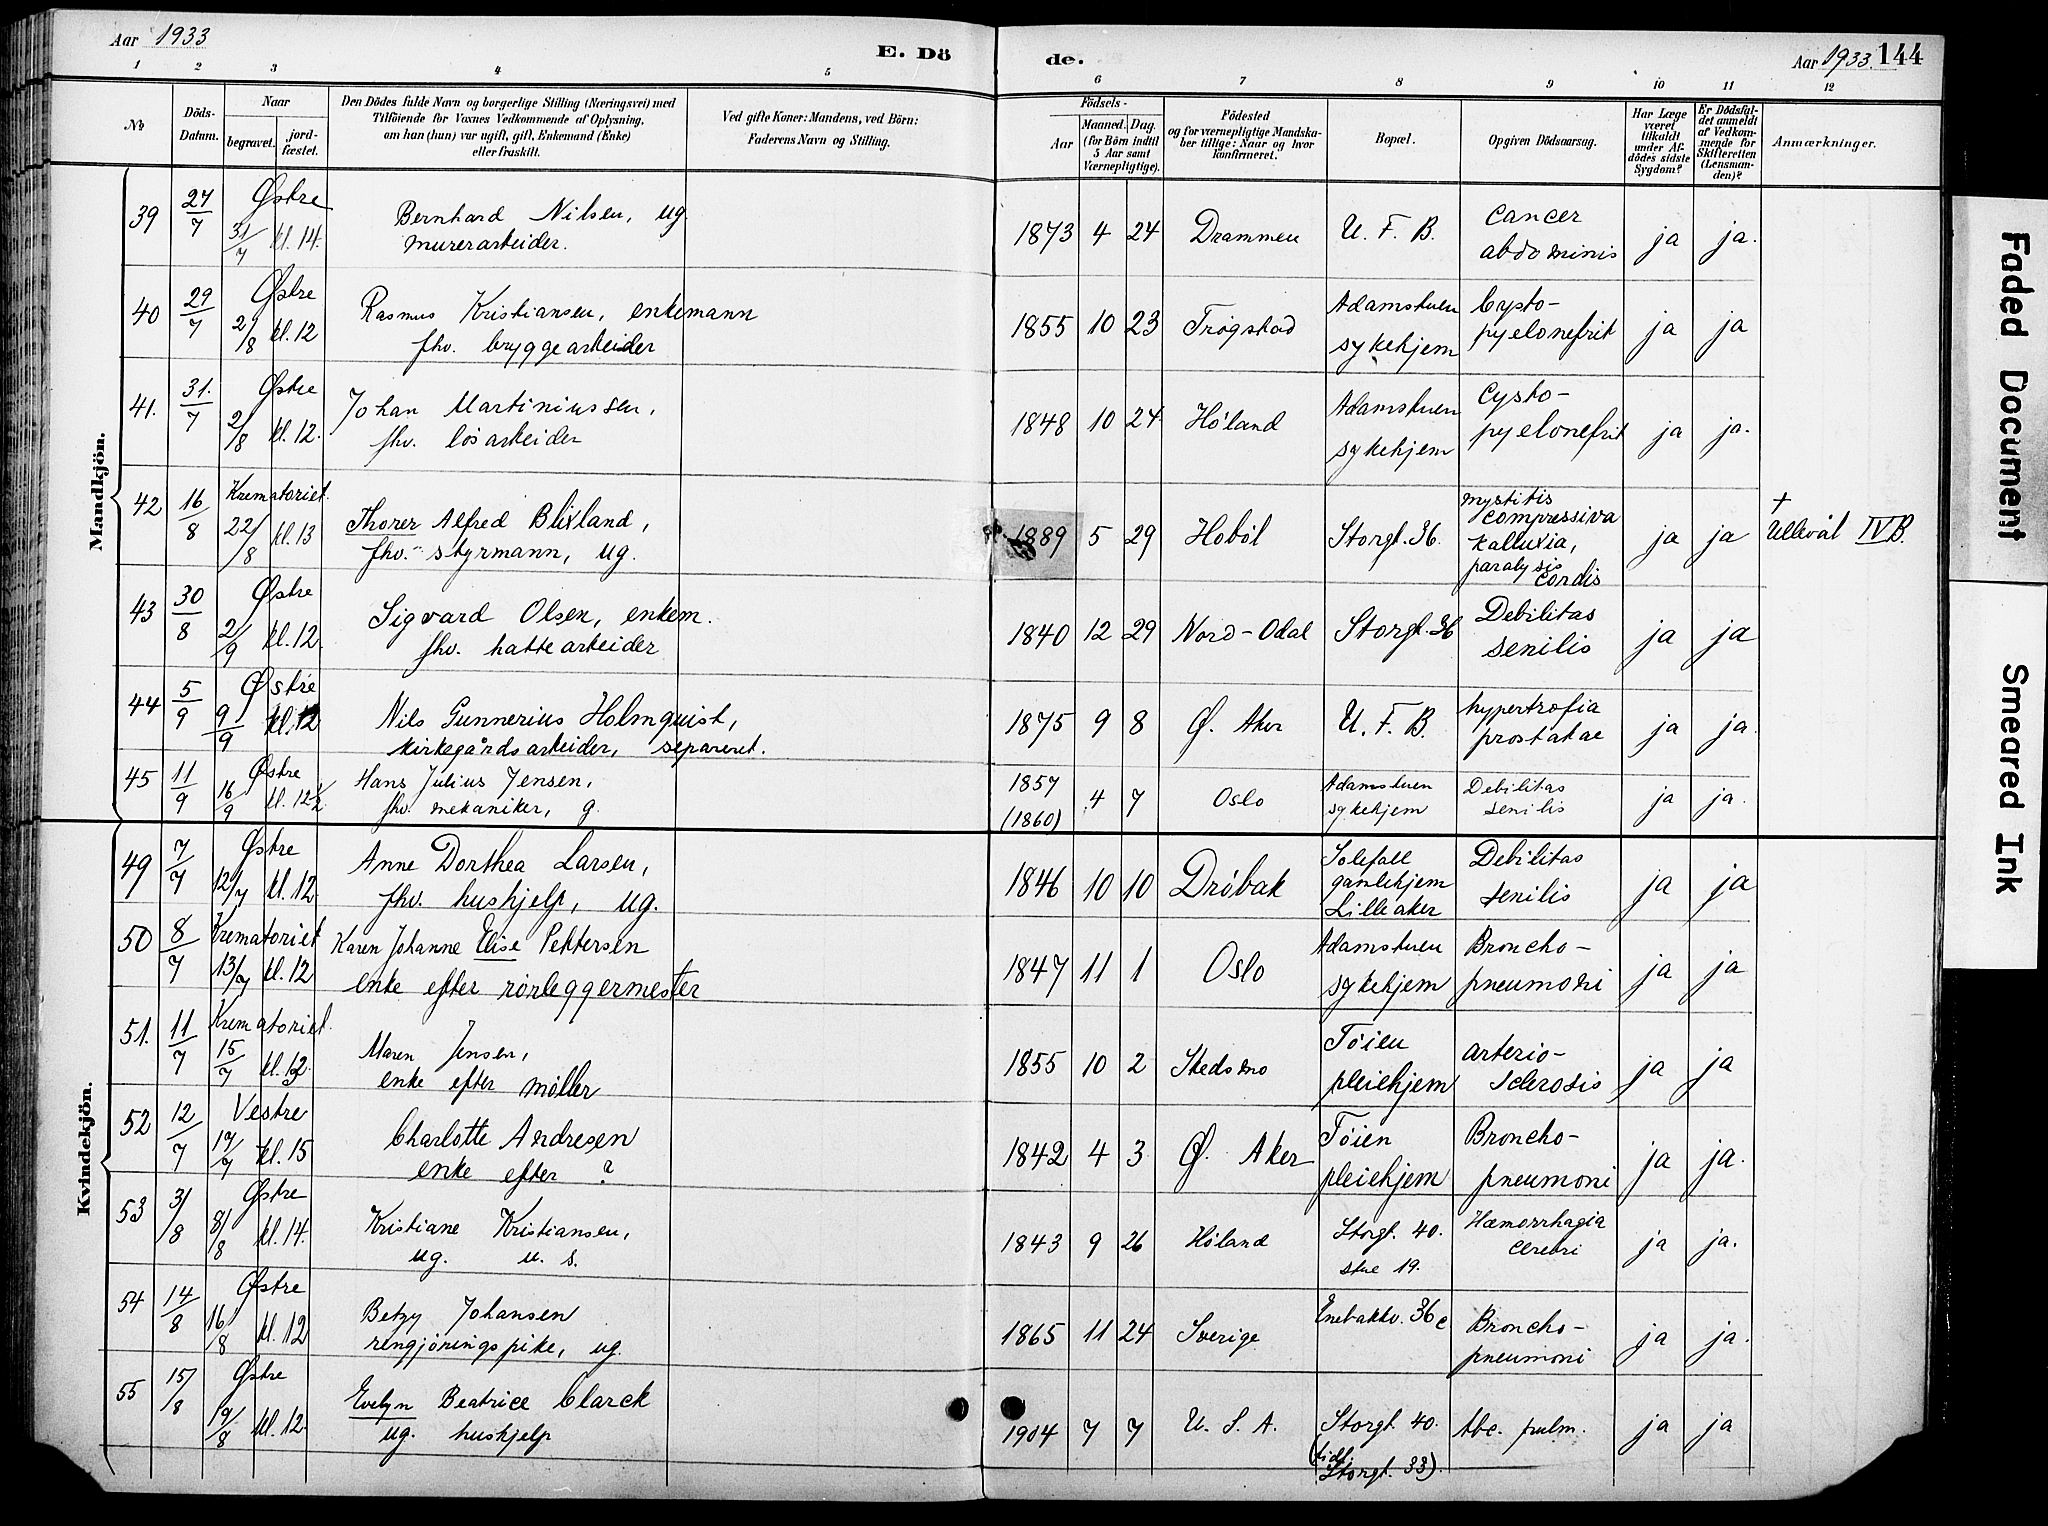 Aar 1933
E. Dö
de.
Aar 1933. 144
1 2 3 4 5 6 7 8 9 10 11 12
№
Döds-Datum.
Naar
begravet.
jordfæstet.
Den Dödes fulde Navn og borgerlige Stilling (Næringsvei) med
Tilföiende for Voxnes Vedkommende af Oplysning,
om han (hun) var ugift, gift, Enkemand (Enke)
eller fraskilt.
Ved gifte Koner: Mandens, ved Börn:
Faderens Navn og Stilling.
Födsels-
Aar
Maaned.
Dag.
(for Börn indtil
5 Aar samt
Værnepligtige).
Födested
og for værnepligtige Mandska-
ber tillige: Naar og hvor
konfirmeret.
Bopæl.
Opgiven Dödsaarsag.
Har Læge
været
tilkaldt
under Af-
dödes sidste
Sygdom?
Er Dödsfal-
det anmeldt
af Vedkom-
mende for
Skifteretten
(Lensman-
den)?
Anmærkninger.
Mandkjön.
39 27/7 Østre 31/7 kl. 14. Bernhard Nilsen, ug. murerarbeider. 1873 4 24 Drammen U. F. B. Cancer abdominis ja ja.
40 29/7 Østre 2/8 kl. 12 Rasmus Kristiansen, enkemann fhv. bryggearbeider 1855 10 23 Trøgstad Adamstuen sykehjem Cysto-pyelonefrit ja ja
41. 31./7 Østre 2/8 kl. 12. Johan Martiniussen, fhv. løsarbeider 1848 10 24 Høland Adamstuen sykehjem Cysto-pyelonefrit ja ja.
42 16/8 Krematoriet. 22/8 kl. 13 Thorer Alfred Blixland, fhv. styrmann, ug. 1889 5 29 Hobøl Storgt. 36. compressiva paralysis cordis ja ja + Ullevål IV B.
43 30/8 Østre 2/9 kl. 12 Sigvard Olsen, enkem. fhv. hattearbeider 1840 12 29 Nord-Odal Storgt. 36 Debilitas senilis ja ja
44 5/9 Østre 9/9 kl. 12 Nils Gunnerius Holmquist, kirkegårdsarbeider, separeret. 1875 9 8 Ø. Aker U. F. B. hypertrofia prostatae ja ja.
45 11/9 Østre 16/9 kl. 12½ Hans Julius Jensen, fhv. mekaniker, g. 1857 (1860) 4 7 Oslo Adamstuen sykehjem Debilitas senilis ja ja.
Kvindekjön.
49 7/7 Østre 12/7 kl. 12 Anne Dorthea Larsen, fhv. hushjelp, ug. 1846 10 10 Drøbak Solefall gamlehjem Lilleaker Debilitas senilis ja ja
50 8/7 Krematoriet 13/7 kl. 12 Karen Johanne Elise Pettersen enke efter rørleggermester 1847 11 1 Oslo Adamstuen sykehjem Broncho-pneumoni ja ja
51. 11/7 Krematoriet. 15/7 kl. Maren Jensen, enke efter møller 1855 10 2 Skedsmo Tøien pleiehjem arterio-sclerosis ja ja
52 12/7 Vestre 17/7 kl. 15 Charlotte Andresen enke efter ? 1842 4 3 Ø. Aker Tøien pleiehjem Broncho-pneumoni ja ja.
53 3/8 Østre 8/8 kl. 14. Kristiane Kristiansen, ug. u. s. 1843 9 26 Høland Storgt. 40. stue 19. Hæmorrhagia cerebri ja ja.
54 14/8 Østre 16/8 kl. 12 Betzy Johansen rengjøringspike, ug. 1865 11 24 Sverige Enebakkv. 36c Broncho-pneumoni ja ja.
55 15/8 Østre 19/8 kl. 12. Evelyn Beatrice Clarck ug. hushjelp 1904 7 7 U. S. A. Storgt. 40. (tidl. Storgt. 33). tbc. pulm. ja ja
Faded Document
Smeared Ink